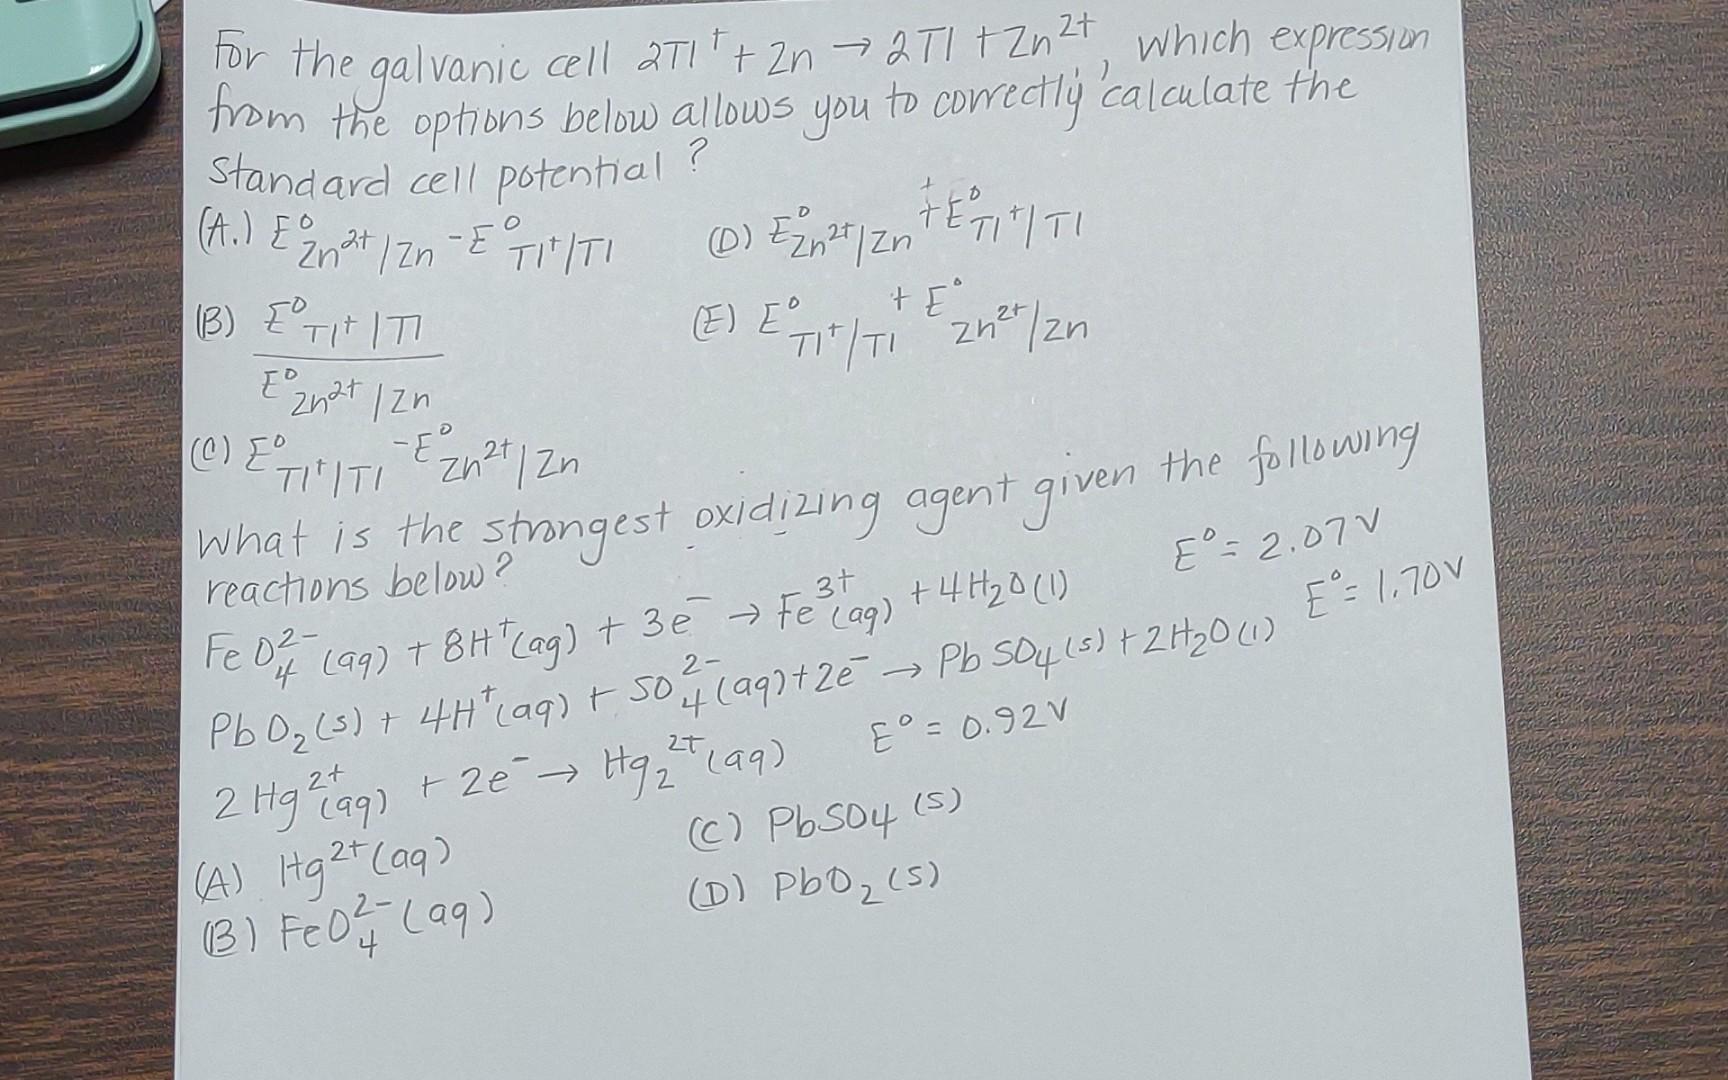 For the galvanic cell 2Tl⁺ + Zn → 2Tl + Zn²⁺, which expression
from the options below allows you to correctly calculate the
standard cell potential?
(A.) E⁰ Zn²⁺/Zn - E⁰ Tl⁺/Tl
(D) E⁰ Zn²⁺/Zn + + E⁰ Tl⁺/Tl
(B) E⁰ Tl⁺/Tl
E⁰ Zn²⁺/Zn
(E) E⁰ Tl⁺/Tl + E° Zn²⁺/Zn
(C) E⁰ Tl⁺/Tl - E⁰ Zn²⁺/Zn
What is the strongest oxidizing agent given the following
reactions below?
FeO₄²⁻(aq) + 8H⁺(aq) + 3e⁻ → Fe³⁺(aq) + 4H₂O(l) E⁰ = 2.07V
PbO₂(s) + 4H⁺(aq) + SO₄²⁻(aq) + 2e⁻ → PbSO₄(s) + 2H₂O(l) E° = 1.70V
2Hg²⁺(aq) + 2e⁻ → Hg₂²⁺(aq) E⁰ = 0.92V
(A) Hg²⁺(aq)
(C) PbSO₄(s)
(B) FeO₄²⁻(aq)
(D) PbO₂(s)